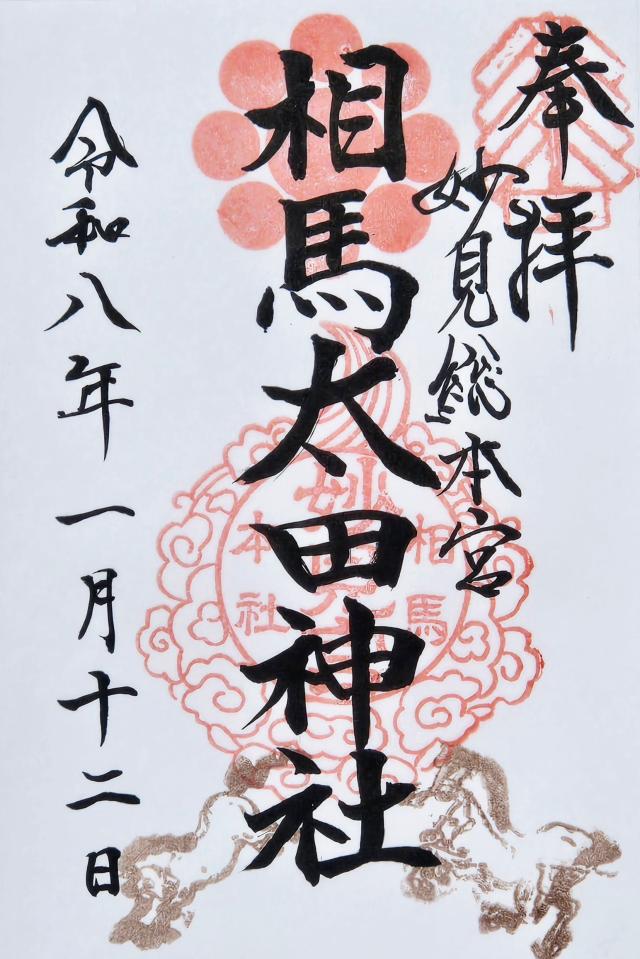 奉拝
妙見総本宮
相馬太田神社
令和八年一月十二日
相馬
妙見
本社